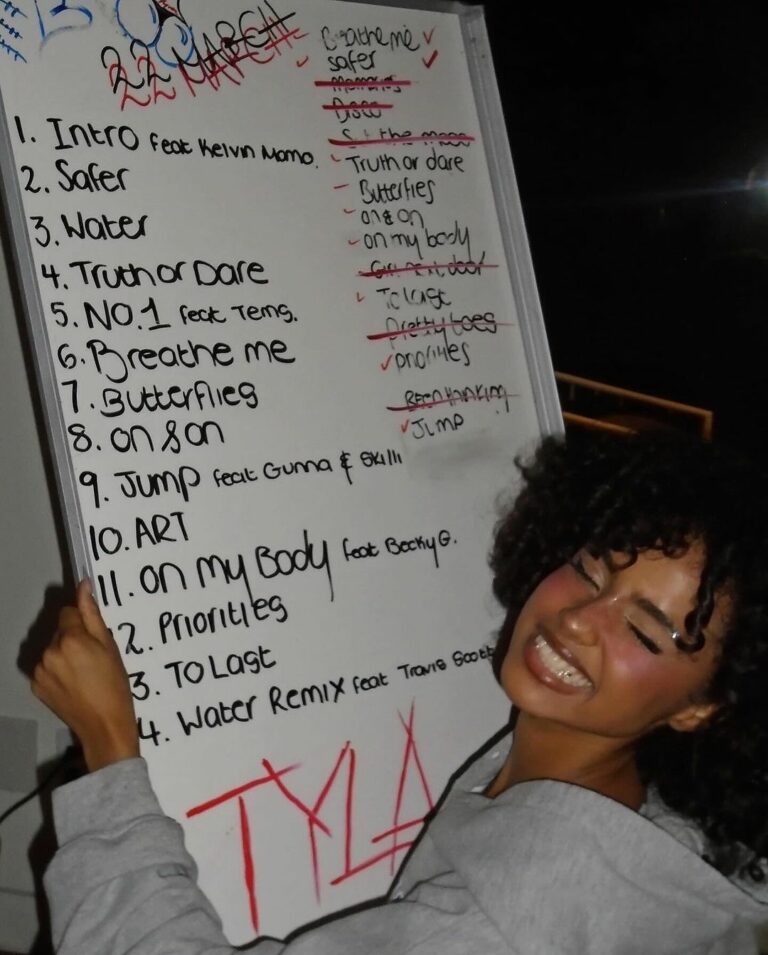 22 MARCH
1. Intro feat Kelvin Momo.
2. Safer
3. Water
4. Truth or Dare
5. NO.1 feat Tems.
6. Breathe me
7. Butterflies
8. on & on
9. Jump feat Gunna & Skilli
10. ART
11. on my Body feat Becky G.
2. Priorities
3. To Last
4. Water Remix feat Travis Scott
TYLA
Breathe me
safer
Memories
Disco
the moon
Truth or dare
Butterfies
on & on
on my body
Girl next door
To last
Pretty toes
priorities
Been thinking
Jump